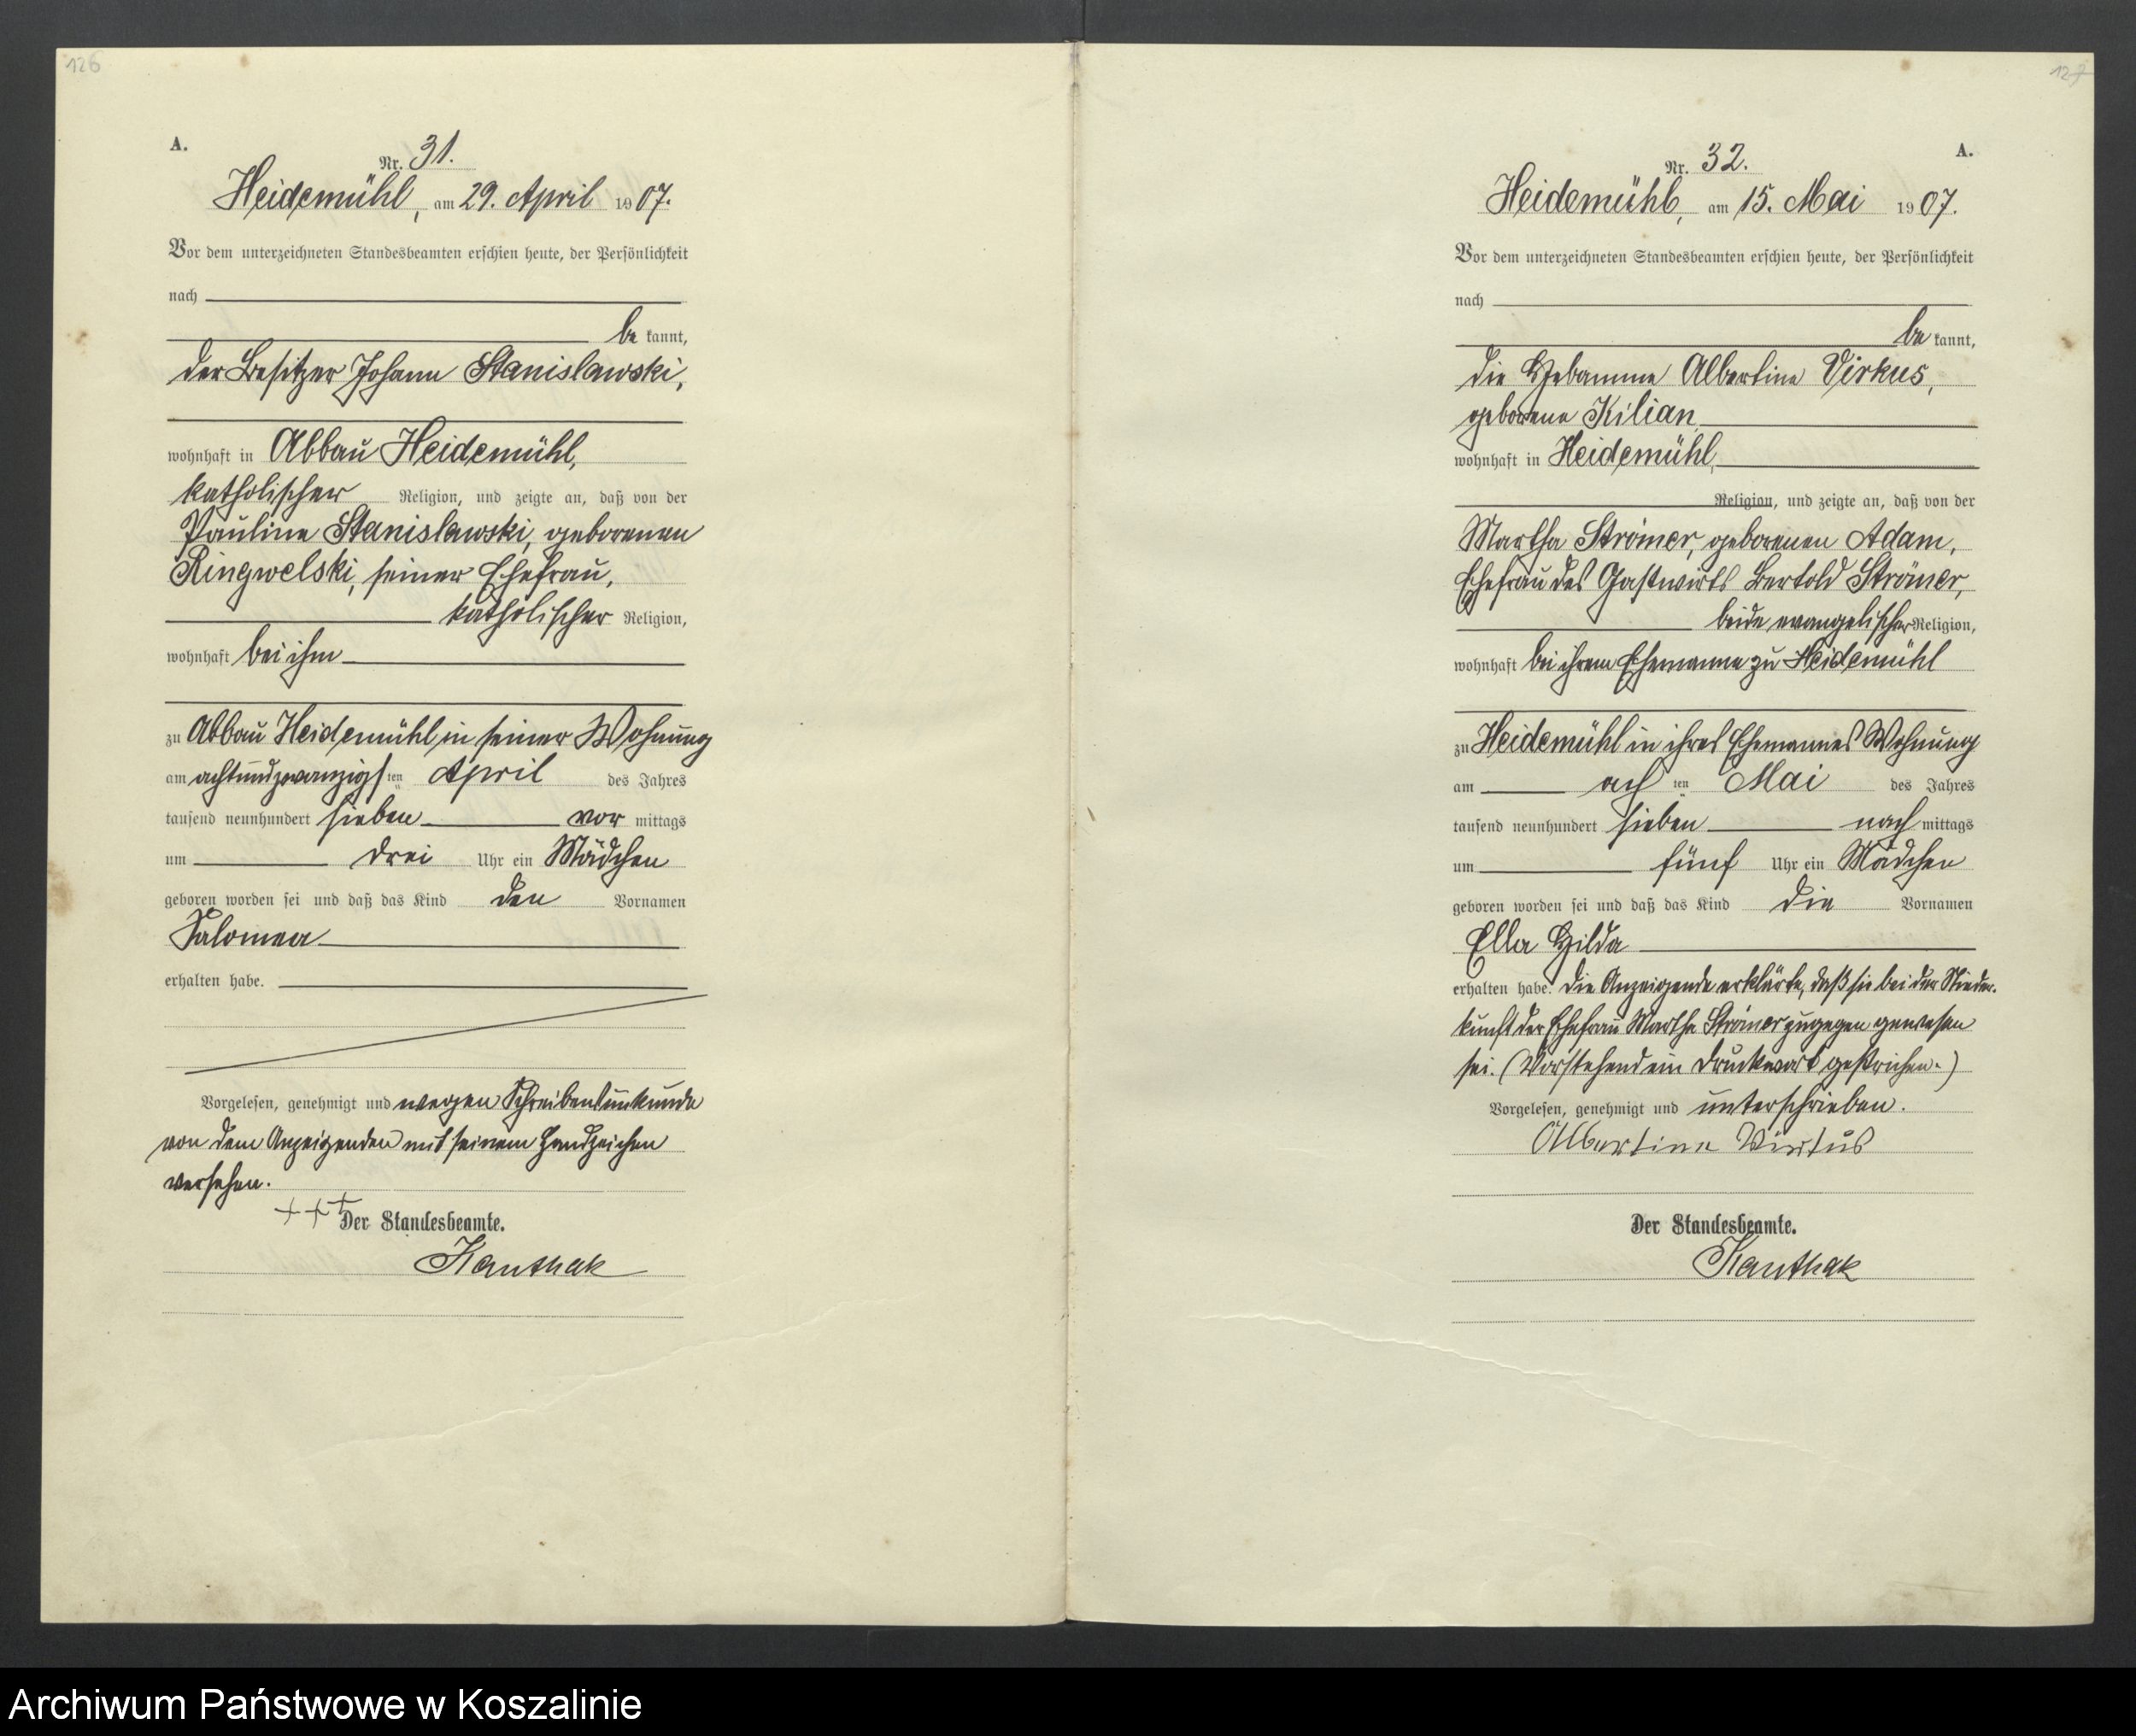 126
A.
Nr. 31.
Heidemühl, am 29. April 1907.
Vor dem unterzeichneten Standesbeamten erschien heute, der Persönlichkeit
nach
be kannt,
der Besitzer Johann Stanislawski,
wohnhaft in Abbau Heidemühl,
katholischer Religion, und zeigte an, daß von der
Pauline Stanislawski, geborenen
Ringwelski, seiner Ehefrau,
katholischer Religion,
wohnhaft bei ihm
zu Abbau Heidemühl in seiner Wohnung
am achtundzwanzigsten April des Jahres
tausend neunhundert sieben vor mittags
um drei Uhr ein Mädchen
geboren worden sei und daß das Kind den Vornamen
Salomea
erhalten habe.
Vorgelesen, genehmigt und wegen Schreibensunkunde
von dem Anzeigenden mit seinem Handzeichen
versehen.
+++
Der Standesbeamte.
Kanthak
127
A.
Nr. 32.
Heidemühl, am 15. Mai 1907.
Vor dem unterzeichneten Standesbeamten erschien heute, der Persönlichkeit
nach
be kannt,
die Hebamme Albertine Virkus,
geborene Kilian,
wohnhaft in Heidemühl,
Religion, und zeigte an, daß von der
Martha Strömer, geborenen Adam,
Ehefrau des Gastwirts Bertold Strömer,
beide evangelischer Religion,
wohnhaft bei ihrem Ehemanne zu Heidemühl
zu Heidemühl in ihres Ehemannes Wohnung
am ach ten Mai des Jahres
tausend neunhundert sieben nach mittags
um fünf Uhr ein Mädchen
geboren worden sei und daß das Kind die Vornamen
Ella Hilda
erhalten habe. Die Anzeigende erklärte, daß sie bei der Nieder-
kunft der Ehefrau Martha Strömer zugegen gewesen
sei. (Vorstehend ein Druckwort gestrichen.)
Vorgelesen, genehmigt und unterschrieben.
Albertine Wirkus
Der Standesbeamte.
Kanthak
Archiwum Państwowe w Koszalinie